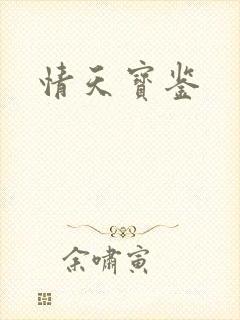 情天寶鉴
余嘯寅